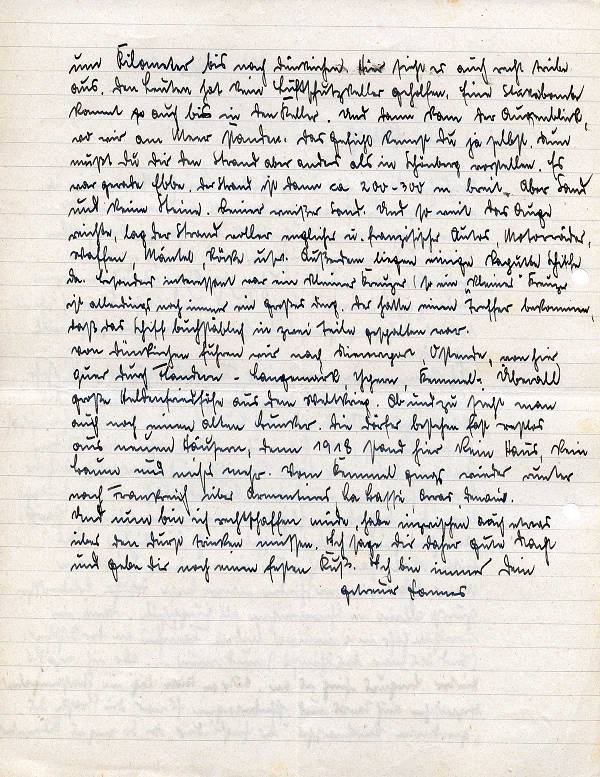 um Kilometer bis nach Dünkirchen. Hier sieht es auch recht trübe
aus. Den Leuten hat kein Luftschutzkeller geholfen. Eine Stukabombe
kommt so auch bis in den Keller. Und dann kam der Augenblick,
wo wir am Meer standen. Das Gefühl kennst Du ja selbst. Nun
mußt Du dir den Strand aber anders als in Schönberg vorstellen. Es
war gerade Ebbe. Der Strand ist dann ca 200-300 m breit. Aber Sand
und keine Steine. Reiner weißer Sand. Und so weit das Auge
reichte, lag der Strand voller englischer u. französischer Autos, Motorräder,
Waffen, Mäntel, Röcke usw. Außerdem liegen einige kaputte Schiffe
da. Besonders interessant war ein kleiner Kreuzer (so ein "kleiner" Kreuzer
ist allerdings noch immer ein großes Ding. Der hatte einen Treffer bekommen,
daß das Schiff buchstäblich in zwei Teile gespalten war.
Von Dünkirchen fuhren wir nach Nieuport, Ostende, von hier
quer durch Flandern - Langemark, Ypern, Kemmel. Überall
große Heldenfriedhöfe aus dem Weltkrieg. Ab und zu sieht man
auch noch einen alten Bunker. Die Dörfer bestehen fast restlos
aus neuen Häusern, denn 1918 stand hier kein Haus, kein
Baum und nichts mehr. Vom Kemmel gings wieder runter
nach Frankreich über Armentieres La Bassé Arras Denain.
Und nun bin ich rechtschaffen müde, habe inzwischen auch etwas
über den Durst trinken müssen. Ich sage Dir daher gute Nacht
und gebe Dir noch einen festen Kuß. Ich bin immer Dein
getreuer Hannes